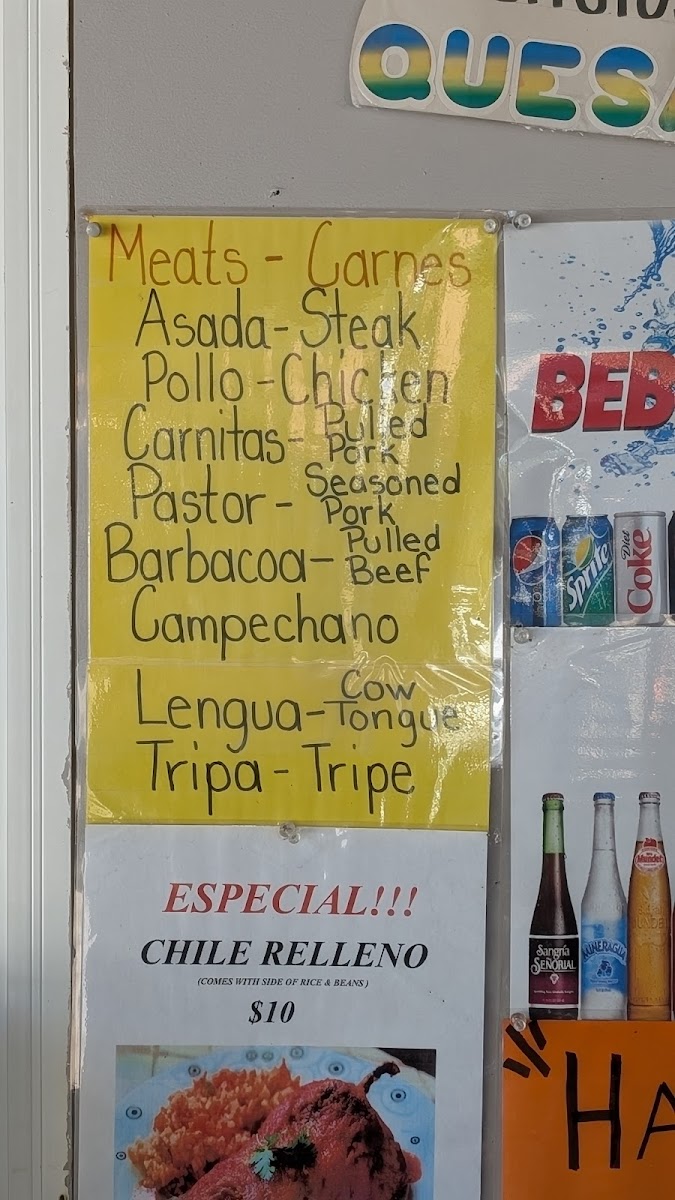 QUES
Meats - Carnes
Asada - Steak
Pollo - Chicken
Carnitas - Pulled Pork
Pastor - Seasoned Pork
Barbacoa - Pulled Beef
Campechano
Lengua - Cow Tongue
Tripa - Tripe
ESPECIAL!!!
CHILE RELLENO
(COMES WITH SIDE OF RICE & BEANS)
$10
BED
pepsi
Sprite
Diet Coke
Sangría
SEÑORIAL
MINERAGUA
Mundet
HA